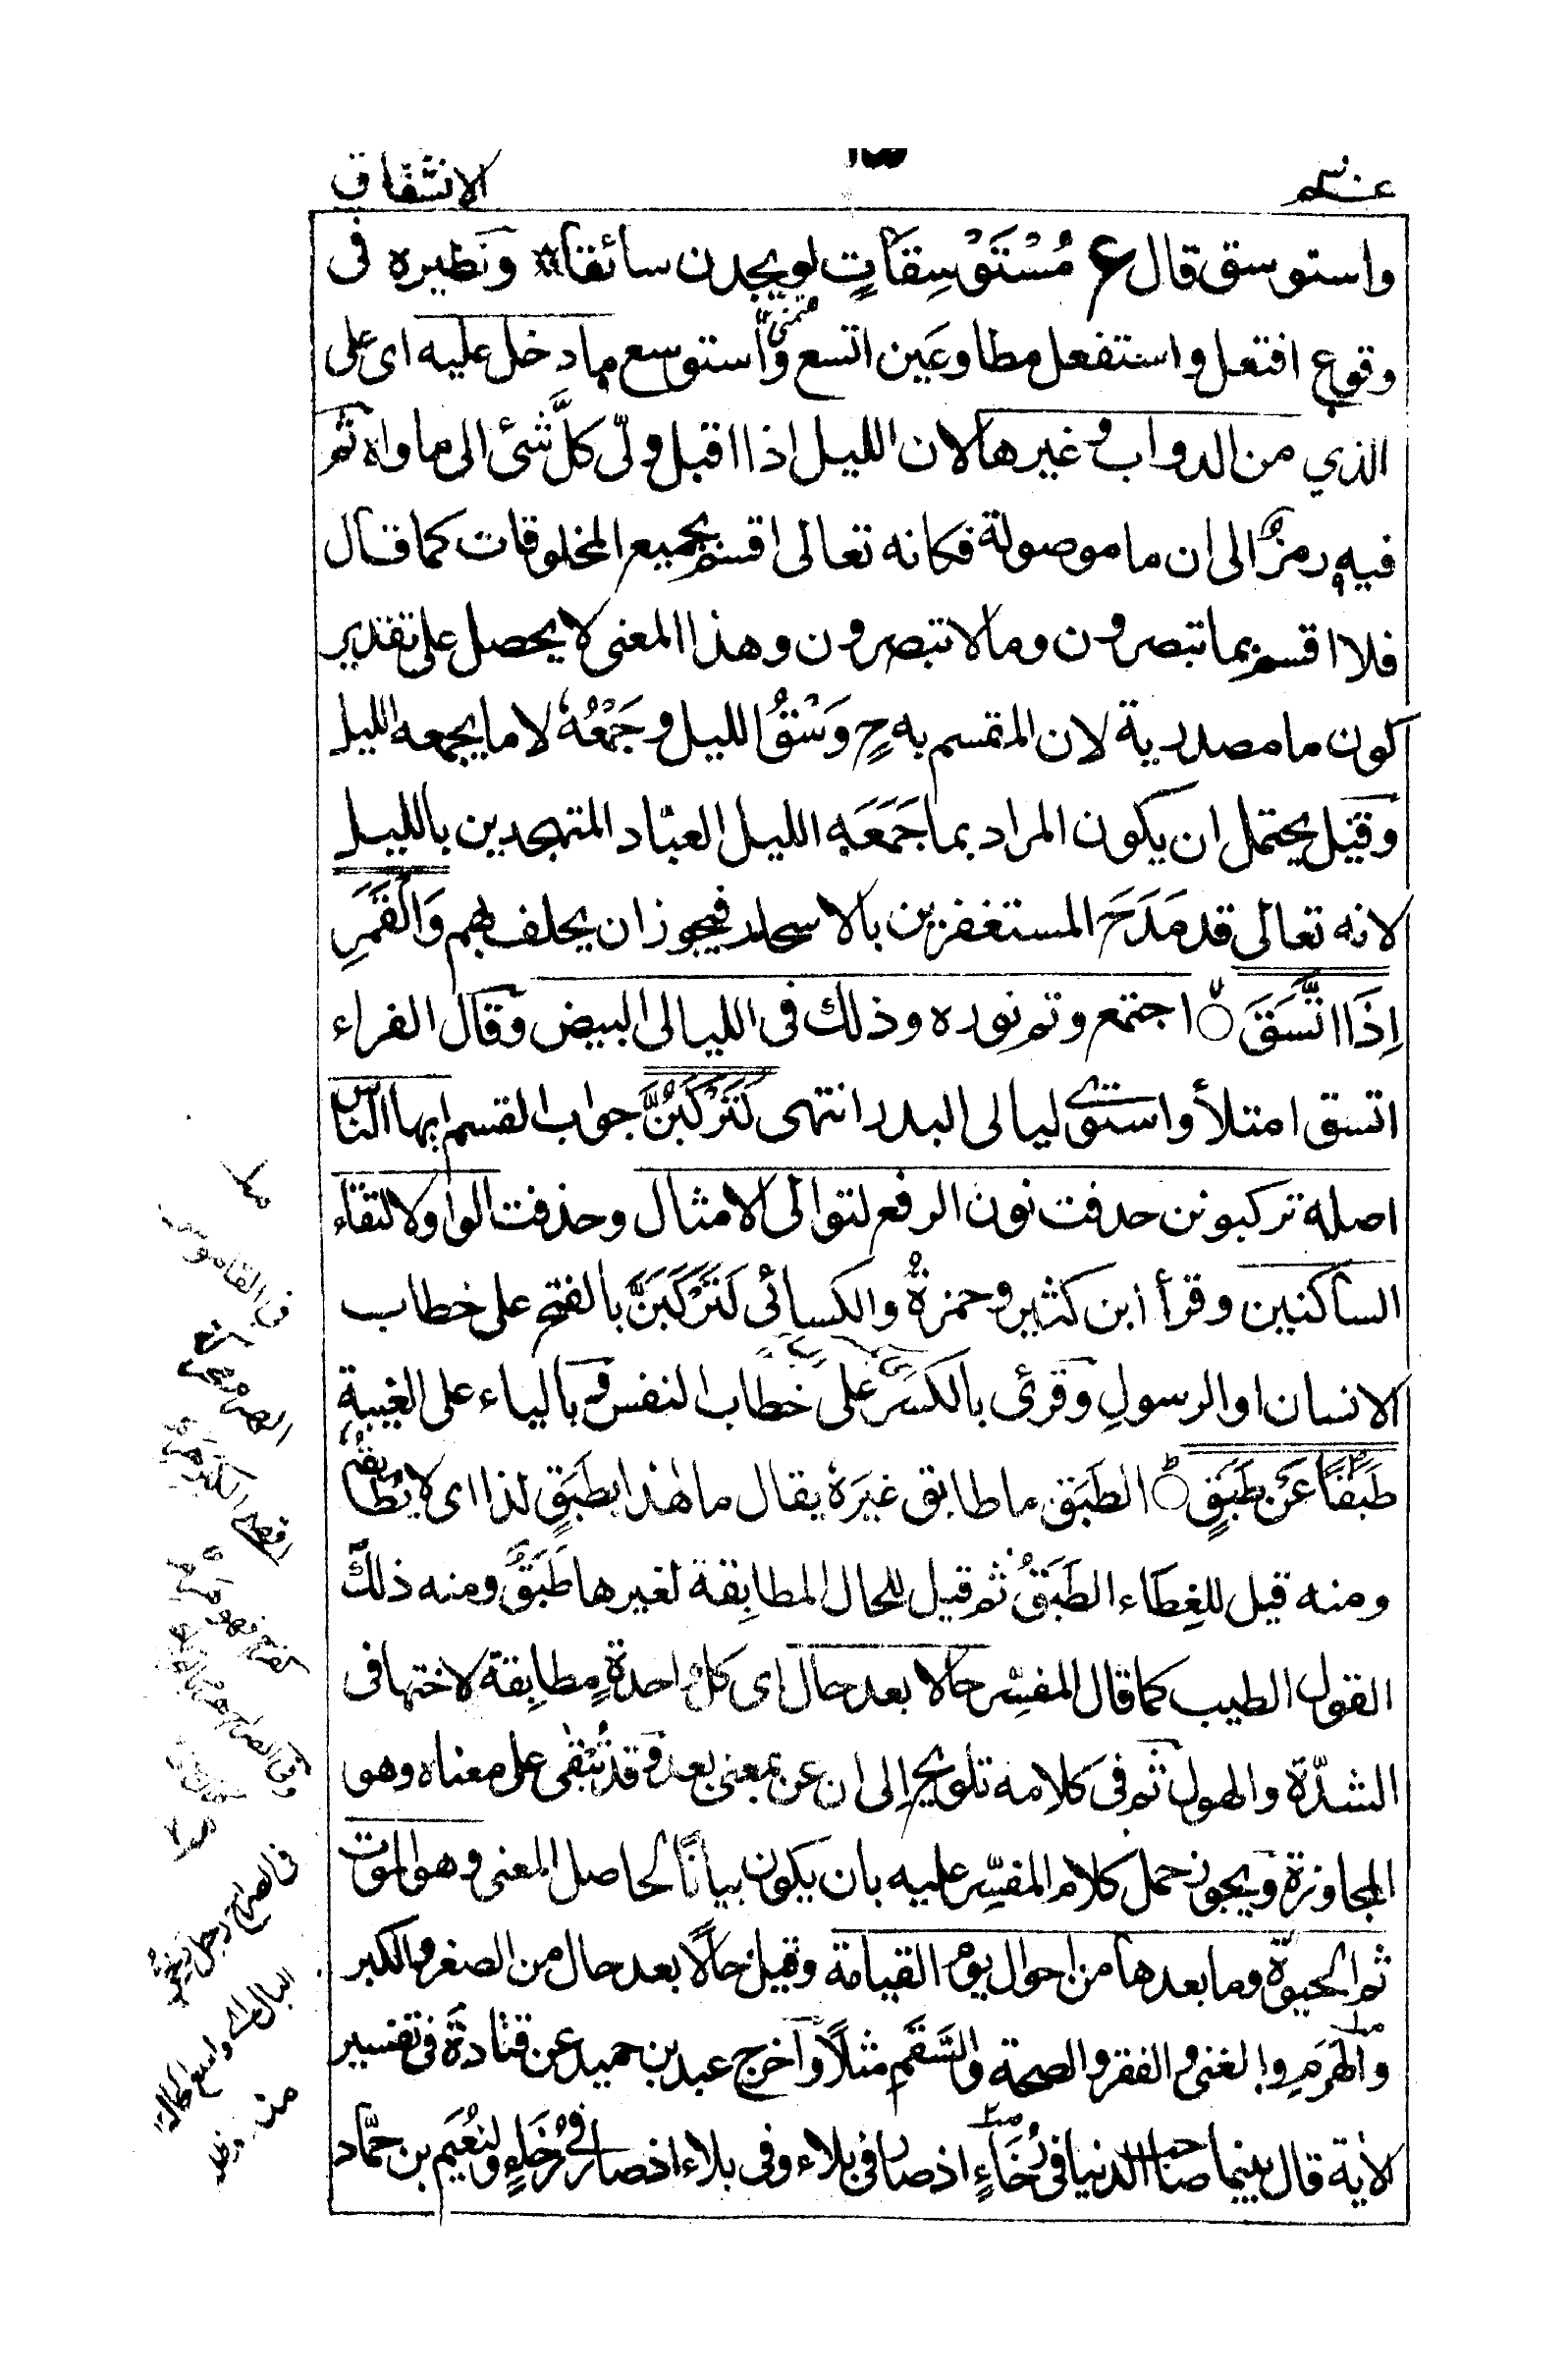 عم
الانشقاق
واستوسق قال ع مُسْتَوْسِقَاتٍ لو يجدن سائقا ونظيره فى
وقوع افتعل واستفعل مطاوعَين اتسع واستوسع ما دخل عليه اى على
الذي من الدواب وغيرها لان الليل اذا اقبل ولّى كلّ شئ الى ماواه ثم
فيه رمزٌ الى ان ما موصولة فكانه تعالى اقسم بجميع المخلوقات كما قال
فلا اقسم بما تبصرون وما لا تبصرون وهذا المعنى لا يحصل على تقدير
كون ما مصدرية لان المقسم به حٍ وَسْقُ الليل وجَمْعُهٗ لا ما يجمعه الليل
وقيل يحتمل ان يكون المراد بما جَمَعَه الليل العبّاد المتهجدين بالليل
لانه تعالى قد مَدَحَ المستغفرين بالاسحار فيجوز ان يحلف بهم وَالْقَمَرِ
إِذَا اتَّسَقَ ۝ اجتمع وتم نوره وذلك فى الليالى البيض وقال الفراء
اتسق امتلأ واستوى ليالى البدر انتهى لَتَرْكَبُنَّ جواب القسم ايها الناس
اصله تركبونن حذفت نون الرفع لتوالى الامثال وحذفت الواو لالتقاء
الساكنين وقرأ ابن كثير وحمزةُ والكسائى لَتَرْكَبَنَّ بالفتح على خطاب
الانسان او الرسولِ وقرئ بالكسر على خطاب النفس وبالياء على الغيبةِ
طَبَقًا عَنْ طَبَقٍ ۝ الطَبَق ما طابق غيرَهٗ يقال ما هٰذا بطَبَقٍ لذا اى لا يطابقه
ومنه قيل للغِطَاء الطَبَقُ ثم قيل للحال المطابِقة لغيرها طَبَقٌ ومنه ذلك
القول الطيب كما قال المفسِّر حالا بعد حال اى كل واحدةٍ مطابِقة لاختها فى
الشدّة والهول ثم فى كلامه تلويح إلى ان عن بمعنى بعد وقد تبقٰى على معناه وهو
المجاوزة ويجوز حمل كلام المفسِّر عليه بان يكون بيانًا لحاصل المعنى وهو الموت
ثم الحيوة وما بعدها من احوال يوم القيامة وقيل حالًا بعد حال من الصغر والكبر
والهَرَمِ والغنى والفقر والصحة والسَّقَمِ مثلًا واخرج عبد بن حميد عن قتادة فى تفسير
الاٰية قال بينما صاحب الدنيا فى رُخَاءٍ اذ صار فى بلاء وفى بلاء اذ صار فى رُخَاءٍ ولنُعَيم بن حمَّاد
فى القاموس
فى الصراح رجل
البال اى واسع الحال